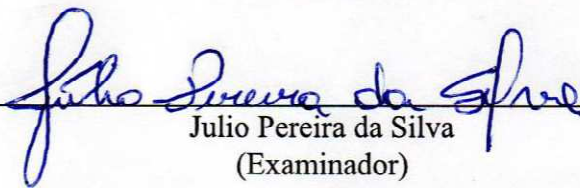 Julio Pereira da Silva
Julio Pereira da Silva
(Examinador)